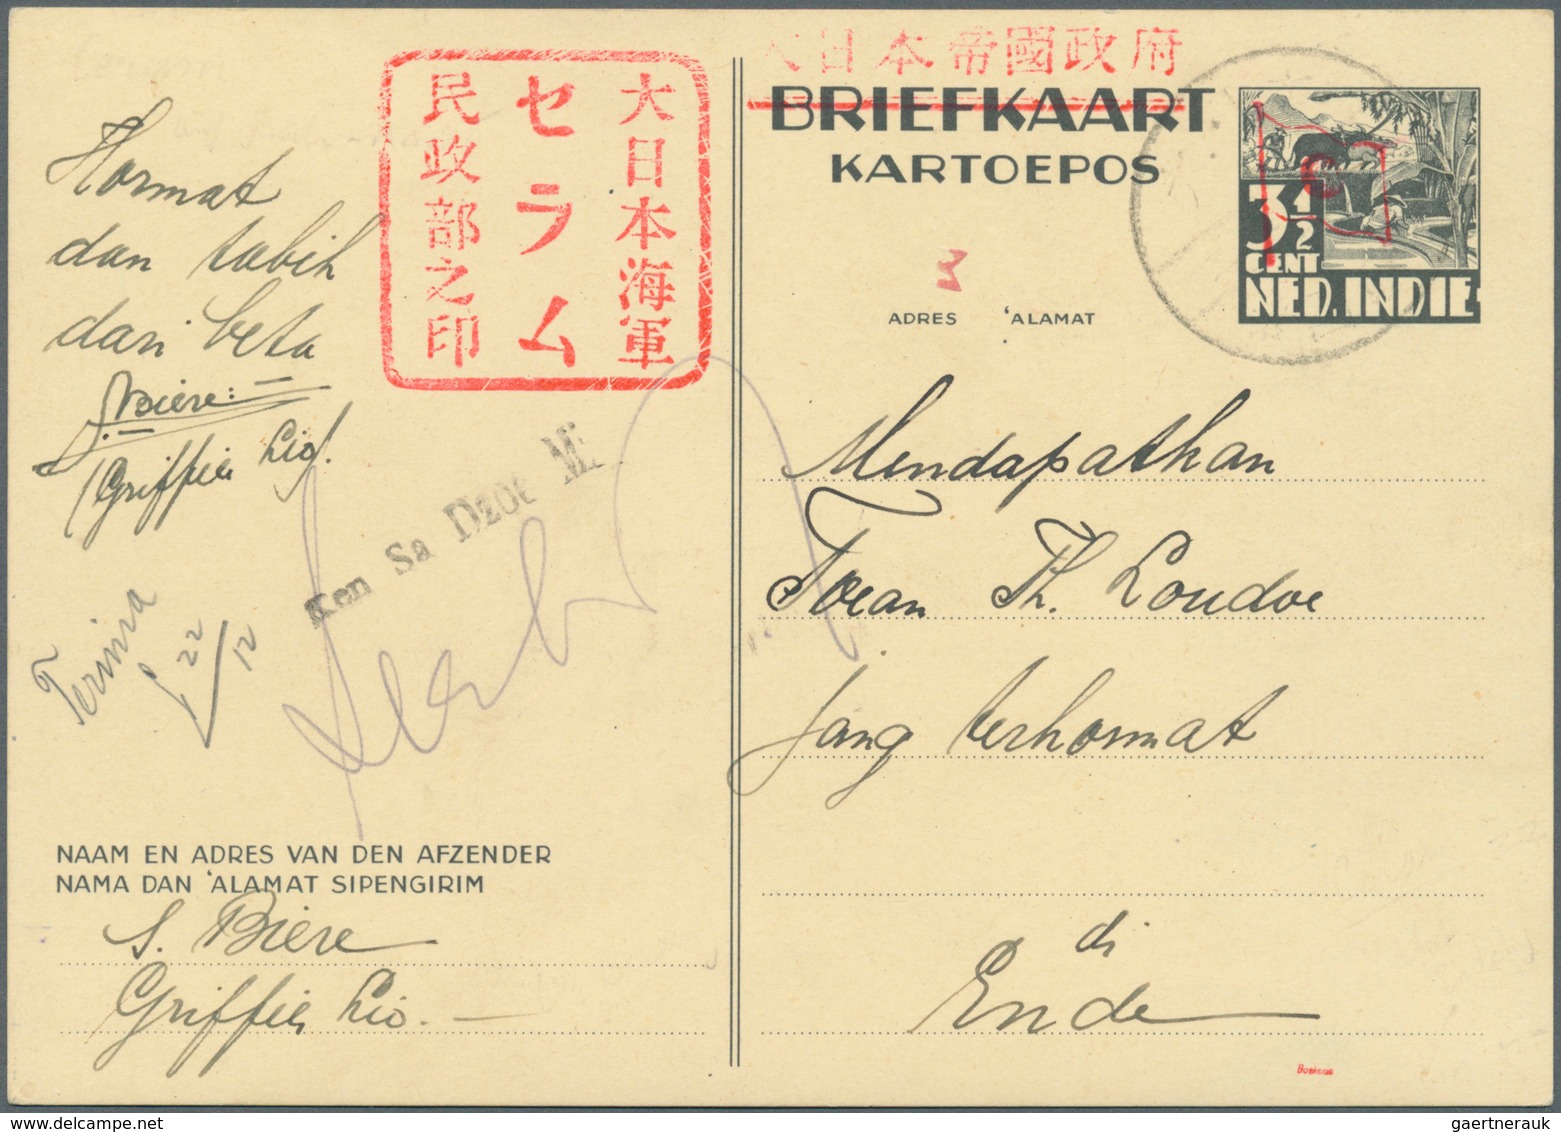 Hormat
dan tabih
dari beta
S. Biere:
Griffier Lio.
Terima
22/12
大日本海軍
セラム
民政部之印
Ken Sa Dzoe Mi
NAAM EN ADRES VAN DEN AFZENDER
NAMA DAN 'ALAMAT SIPENGIRIM
S. Biere
Griffier Lio.
大日本帝國政府
BRIEFKAART
KARTOEPOS
3½
CENT
NED. INDIE
3
ADRES 'ALAMAT
Mendapathan
Toean Th. Loudoe
jang terhormat
di
Ende
gaertnerauk@delcampe.net